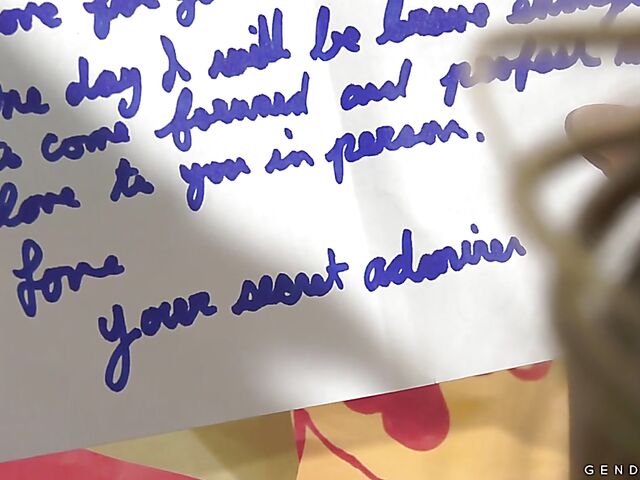 for
day I will be brave
come forward and profess
love to you in person.
Love
Your secret admirer
GEND